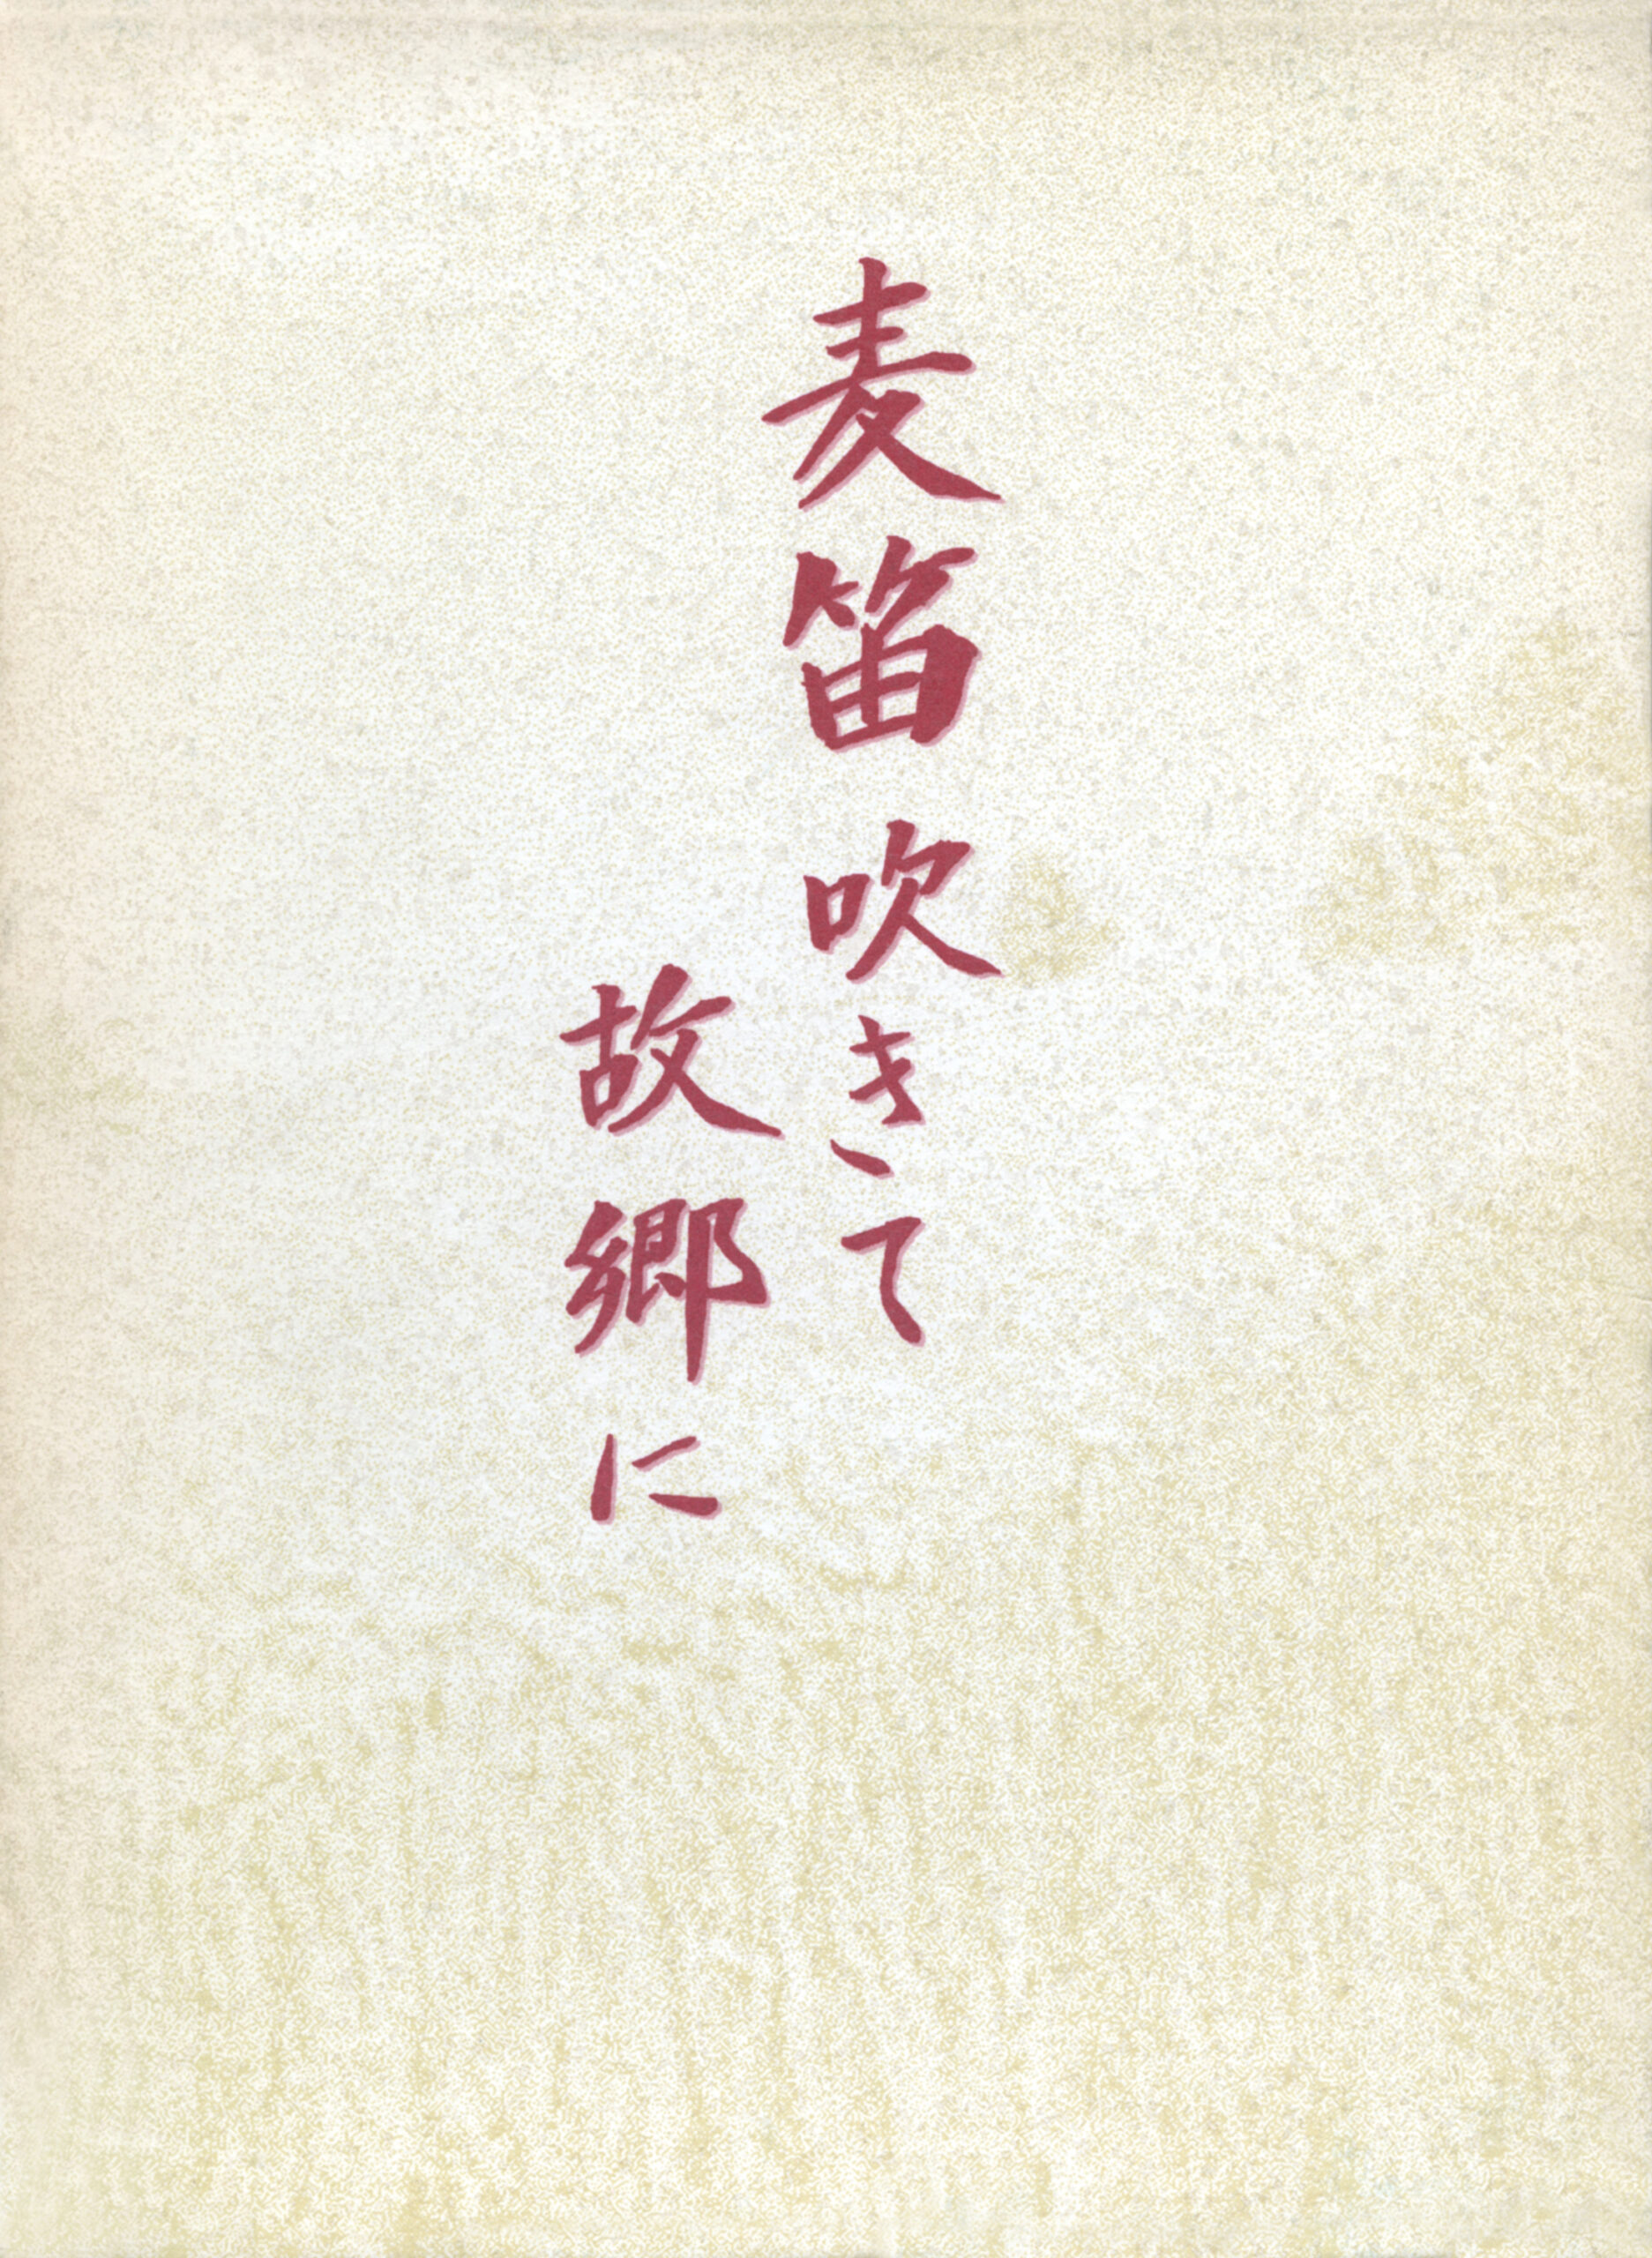 麦笛吹きて
故郷に